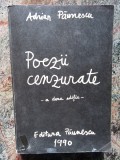 Adrian Păunescu
Poezii
cenzurate
- a doua ediție -
Editura Păunescu
1990